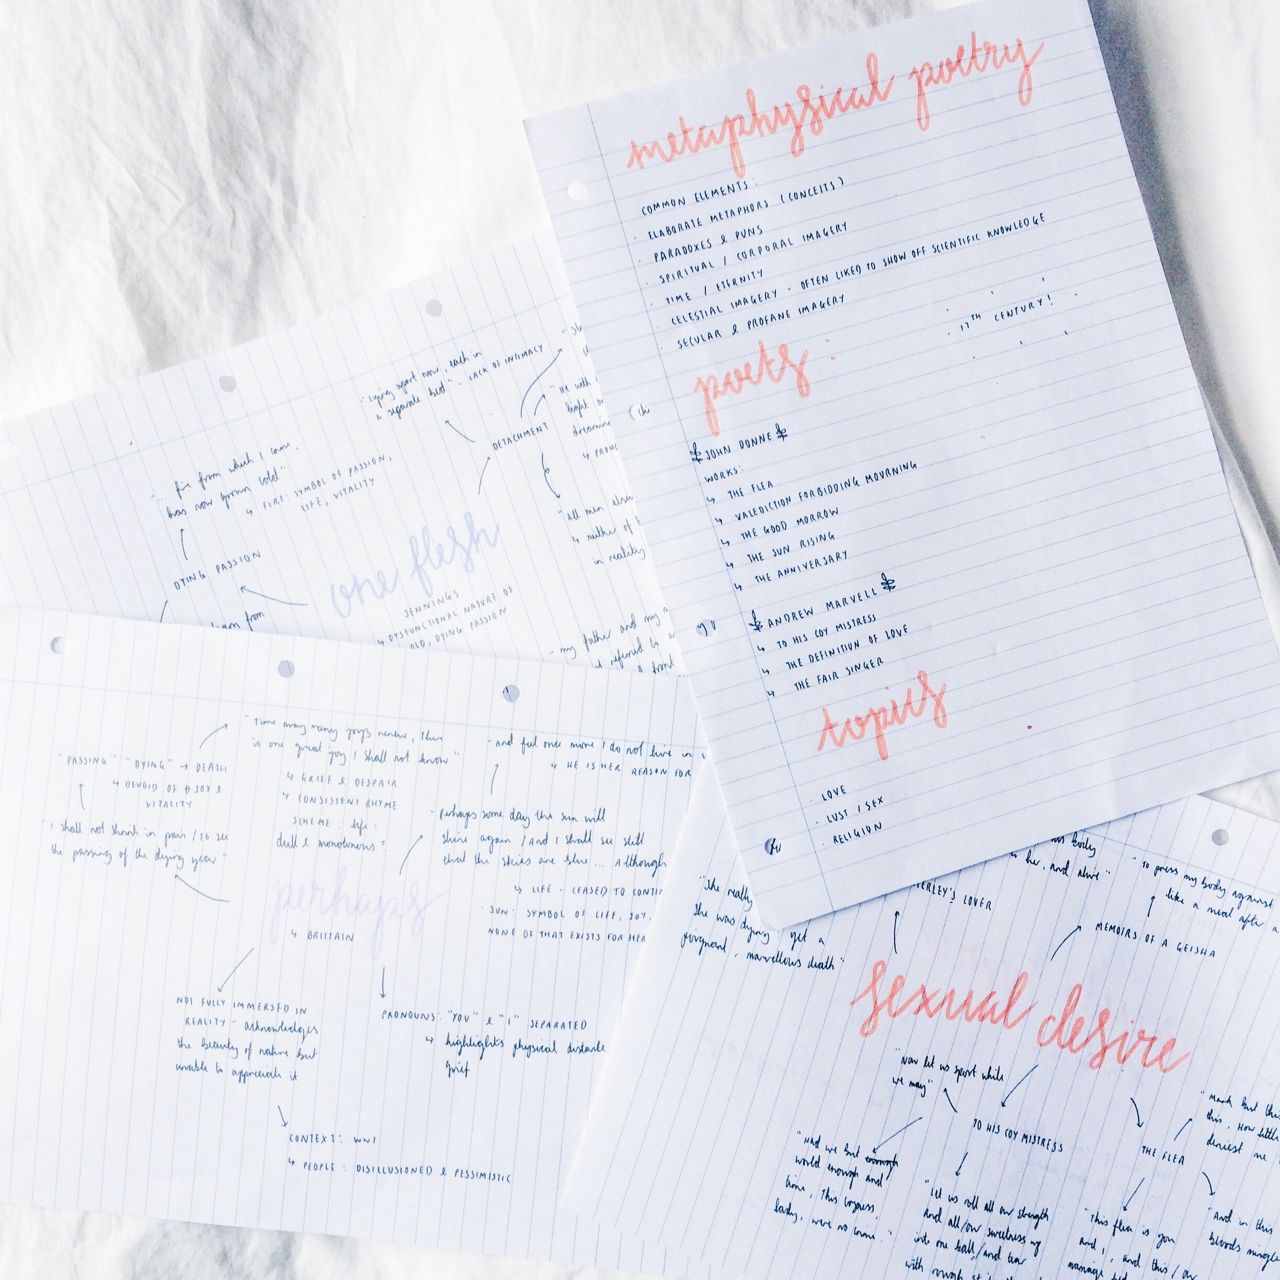 metaphysical poetry
COMMON ELEMENTS:
· ELABORATE METAPHORS (CONCEITS)
· PARADOXES & PUNS
· SPIRITUAL / CORPORAL IMAGERY
· TIME / ETERNITY
· CELESTIAL IMAGERY - OFTEN LIKED TO SHOW OFF SCIENTIFIC KNOWLEDGE
· SECULAR & PROFANE IMAGERY
17TH CENTURY!
poets:
JOHN DONNE
WORKS:
↳ THE FLEA
↳ VALEDICTION FORBIDDING MOURNING
↳ THE GOOD MORROW
↳ THE SUN RISING
↳ THE ANNIVERSARY
ANDREW MARVELL
↳ TO HIS COY MISTRESS
↳ THE DEFINITION OF LOVE
↳ THE FAIR SINGER
topics
· LOVE
· LUST / SEX
· RELIGION
"Lying apart now, each in
a separate bed" - LACK OF INTIMACY
DETACHMENT
"He with
light
↳
"All men
↳
in reality
"... fire from which I came,
has now grown cold"
↳ FIRE: SYMBOL OF PASSION,
LIFE, VITALITY
DYING PASSION
from
one flesh
JENNINGS
↳ DYSFUNCTIONAL NATURE OF
OLD, DYING PASSION
- my father and my
referred to
"Time may many joys renew, there
is one great joy I shall not know"
↳ GRIEF & DESPAIR
↳ CONSISTENT RHYME
SCHEME: life:
dull & monotonous?
"PASSING" "DYING" → DEATH
↳ DEVOID OF JOY &
VITALITY
"I shall not shrink in pain / To see
the passing of the dying year"
- And feel once more I do not live in
↳ HE IS HER REASON FOR
- perhaps some day the sun will
shine again / And I shall see still
that the skies are blue... Although
↳ LIFE - CEASED TO
· SUN: SYMBOL OF LIFE, JOY,
NONE OF THAT EXISTS FOR HER
perhaps
↳ BRITTAIN
NOT FULLY IMMERSED IN
REALITY - acknowledges
the beauty of nature but
unable to appreciate it
PRONOUNS: "YOU" & "I" SEPARATED
↳ highlights physical distance
grief
CONTEXT: WWI
↳ PEOPLE: DISILLUSIONED & PESSIMISTIC
"She really
she was dying: yet a
poignant, marvellous death"
body
her, and alive"
LOVER
"To press my body against
like a meal after a
MEMOIRS OF A GEISHA
sexual desire
"Now let us sport while
we may"
TO HIS COY MISTRESS
"Had we but enough
world enough and
time, This coyness,
lady, were no crime."
"Let us roll all our strength
And all/our sweetness up
into one ball/and tear
with rough
THE FLEA
"Mark but this
this, How little
deniest me
"This flea is you
and I, and this / our
marriage bed
"And in this
bloods mingle